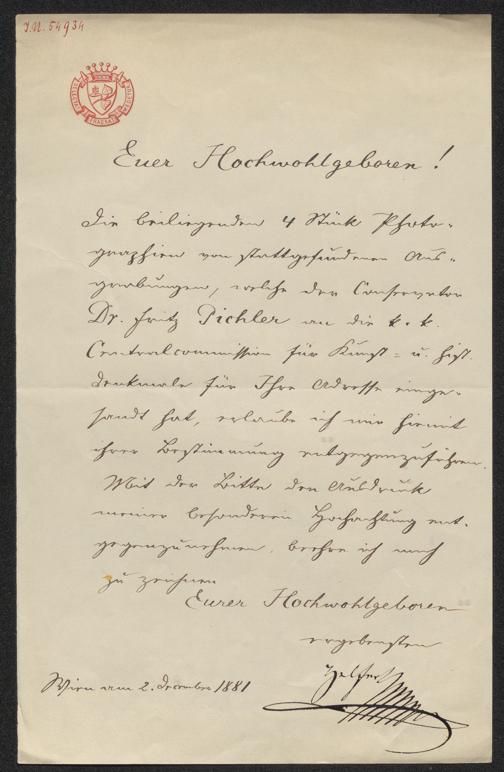 J.N. 54934
Euer Hochwohlgeboren!
Die beiliegenden 4 Stück Photo-
graphien von stattgefundenen Aus-
grabungen, welche der Conservator
Dr. Fritz Pichler an die k. k.
Centralcommission für Kunst- u. hist.
Denkmale für Ihre Adresse einge-
sandt hat, erlaube ich mir hiemit
ihrer Bestimmung entgegenzuführen.
Mit der Bitte den Ausdruck
meiner besonderen Hochachtung ent-
gegenzunehmen, beehre ich mich
zu zeichnen
Eurer Hochwohlgeboren
ergebensten
Helfert
Wien am 2. December 1881